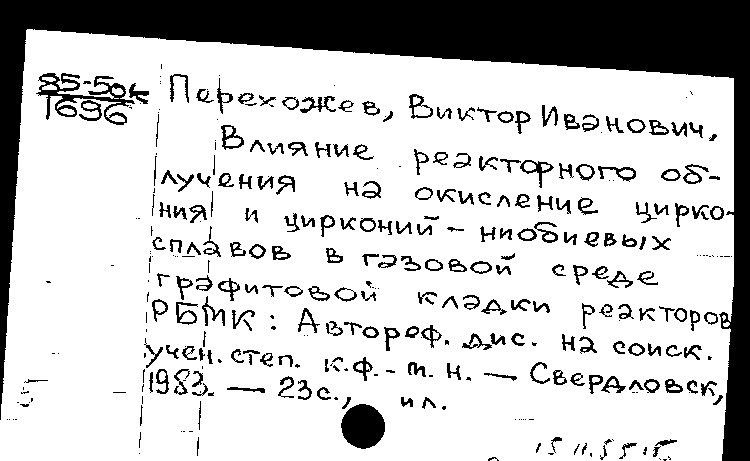 85-5ок
1696
Перехожев, Виктор Иванович,
Влияние реакторного об-
лучения на окисление цирко-
ния и цирконий - ниобиевых
сплавов в газовой среде
графитовой кладки реакторов
РБМК: Автореф. дис. на соиск.
учен. степ. к.ф.-т. н. — Свердловск,
1983. — 23 с., ил.
5